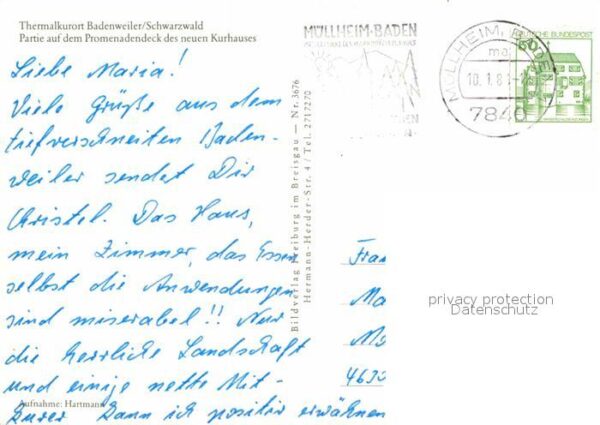 Thermalkurort Badenweiler/Schwarzwald
Partie auf dem Promenadendeck des neuen Kurhauses
Liebe Maria!
Viele Grüße aus dem
tiefverschneiten Baden-
weiler sendet Dir
Christel. Das Haus,
mein Zimmer, das Essen
selbst die Anwendungen
sind miserabel!! Nur
die herrliche Landschaft
und einige nette Mit-
kurer kann ich positiv erwähnen
Aufnahme: Hartmann
Bildverlag Freiburg im Breisgau — Nr. 3676
Hermann-Herder-Str. 4 / Tel. 2717270
MÜLLHEIM-BADEN
MÜLLHEIM, BADEN
ma
10.1.8
7840
DEUTSCHE BUNDESPOST
50
Frau
Ma
Mo
4630
privacy protection
Datenschutz